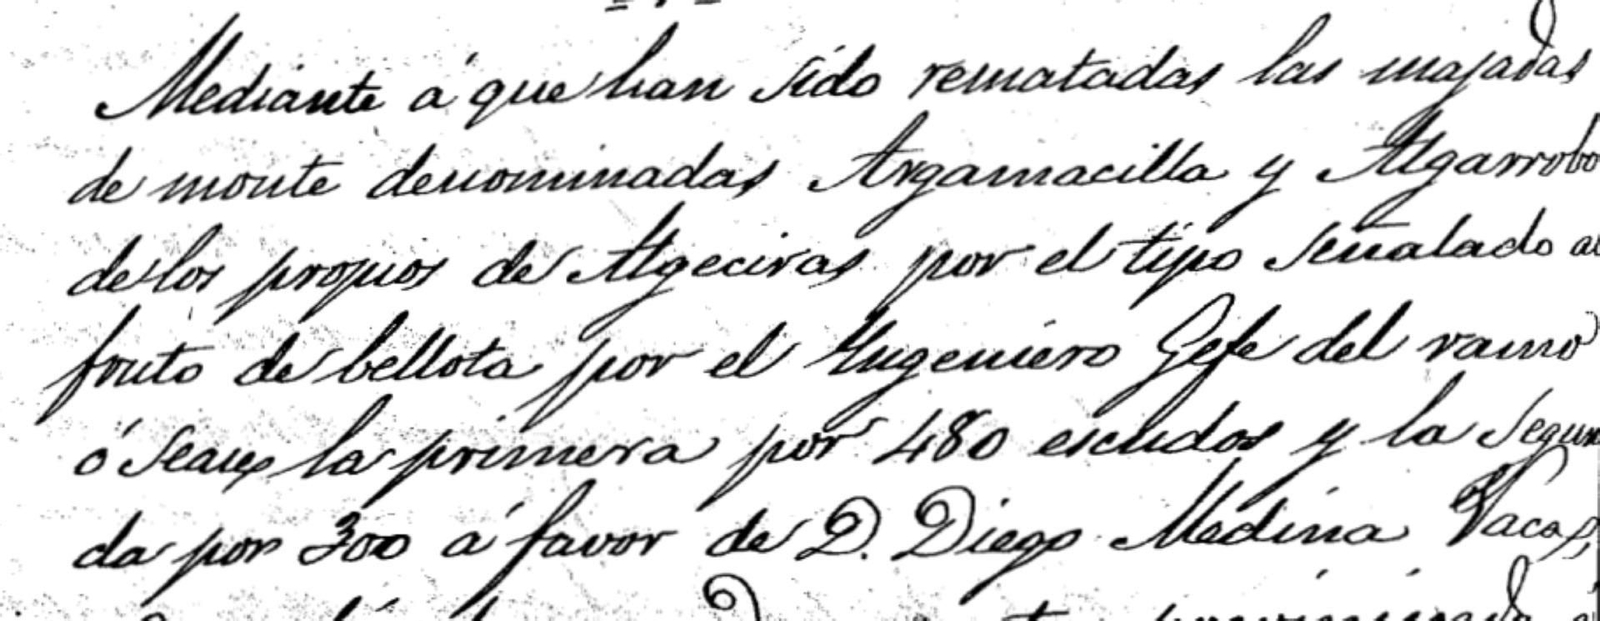 Mediante á que han sido rematadas las majadas
de monte denominadas Argamacilla y Algarrobo
de los propios de Algeciras por el tipo señalado al
fruto de bellota por el Yngeniero Gefe del ramo
ó sean la primera por 480 escudos y la segun
da por 300 á favor de D. Diego Medina Vacas,